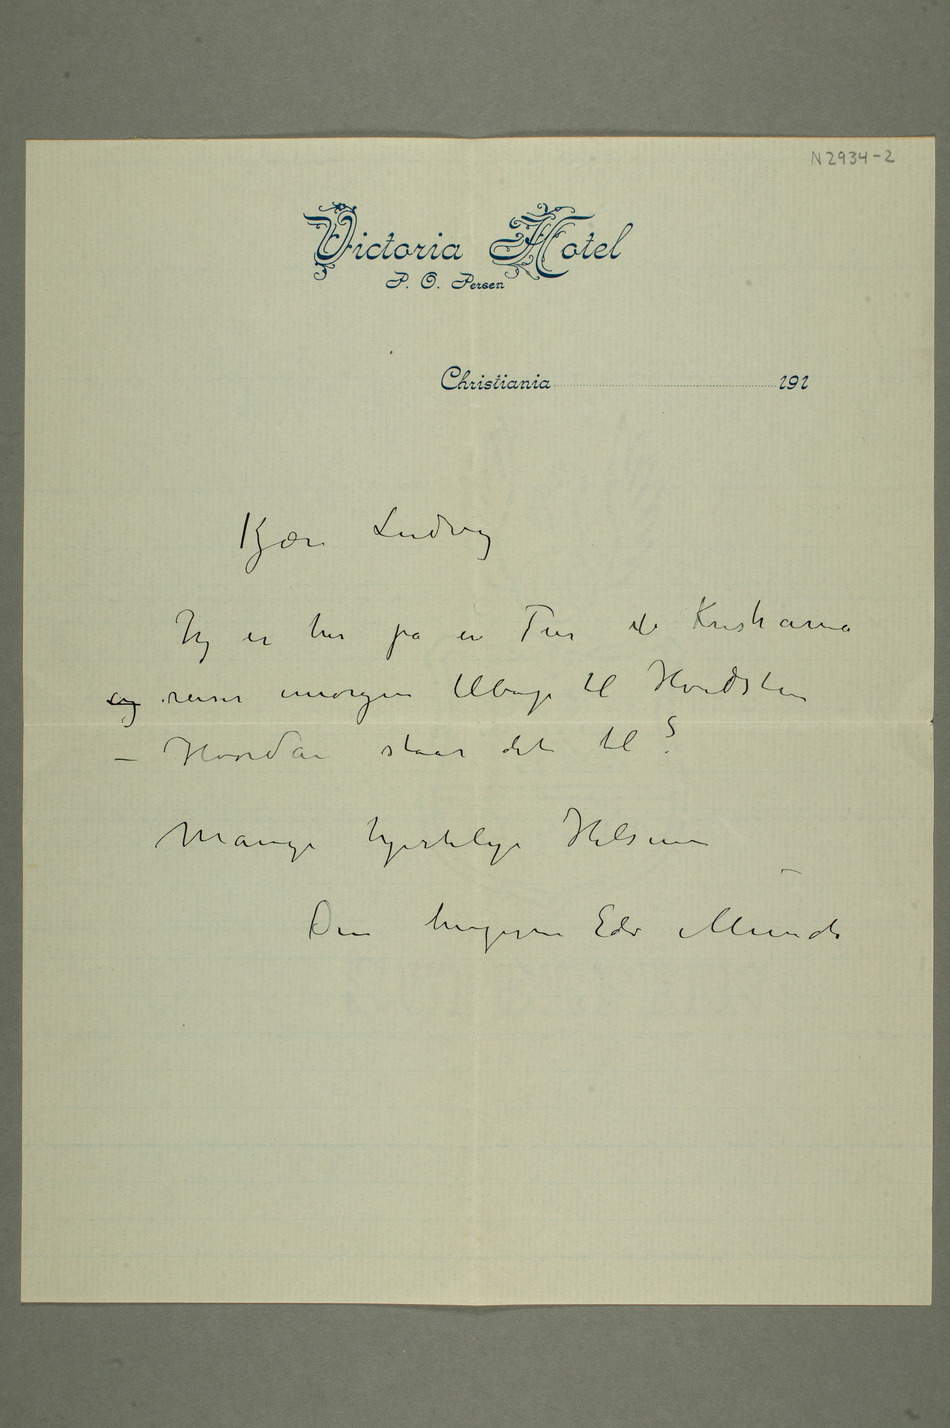 N 2934-2
Victoria Hotel
P. O. Persen
Christiania 191
Kjære Ludvig
Jeg er her på en Tur til Kristiania
og reiser imorgen tilbage til Hvidsten
– Hvordan staar det til?
Mange hjertelige Hilsener
Din hengivne Edv Munch